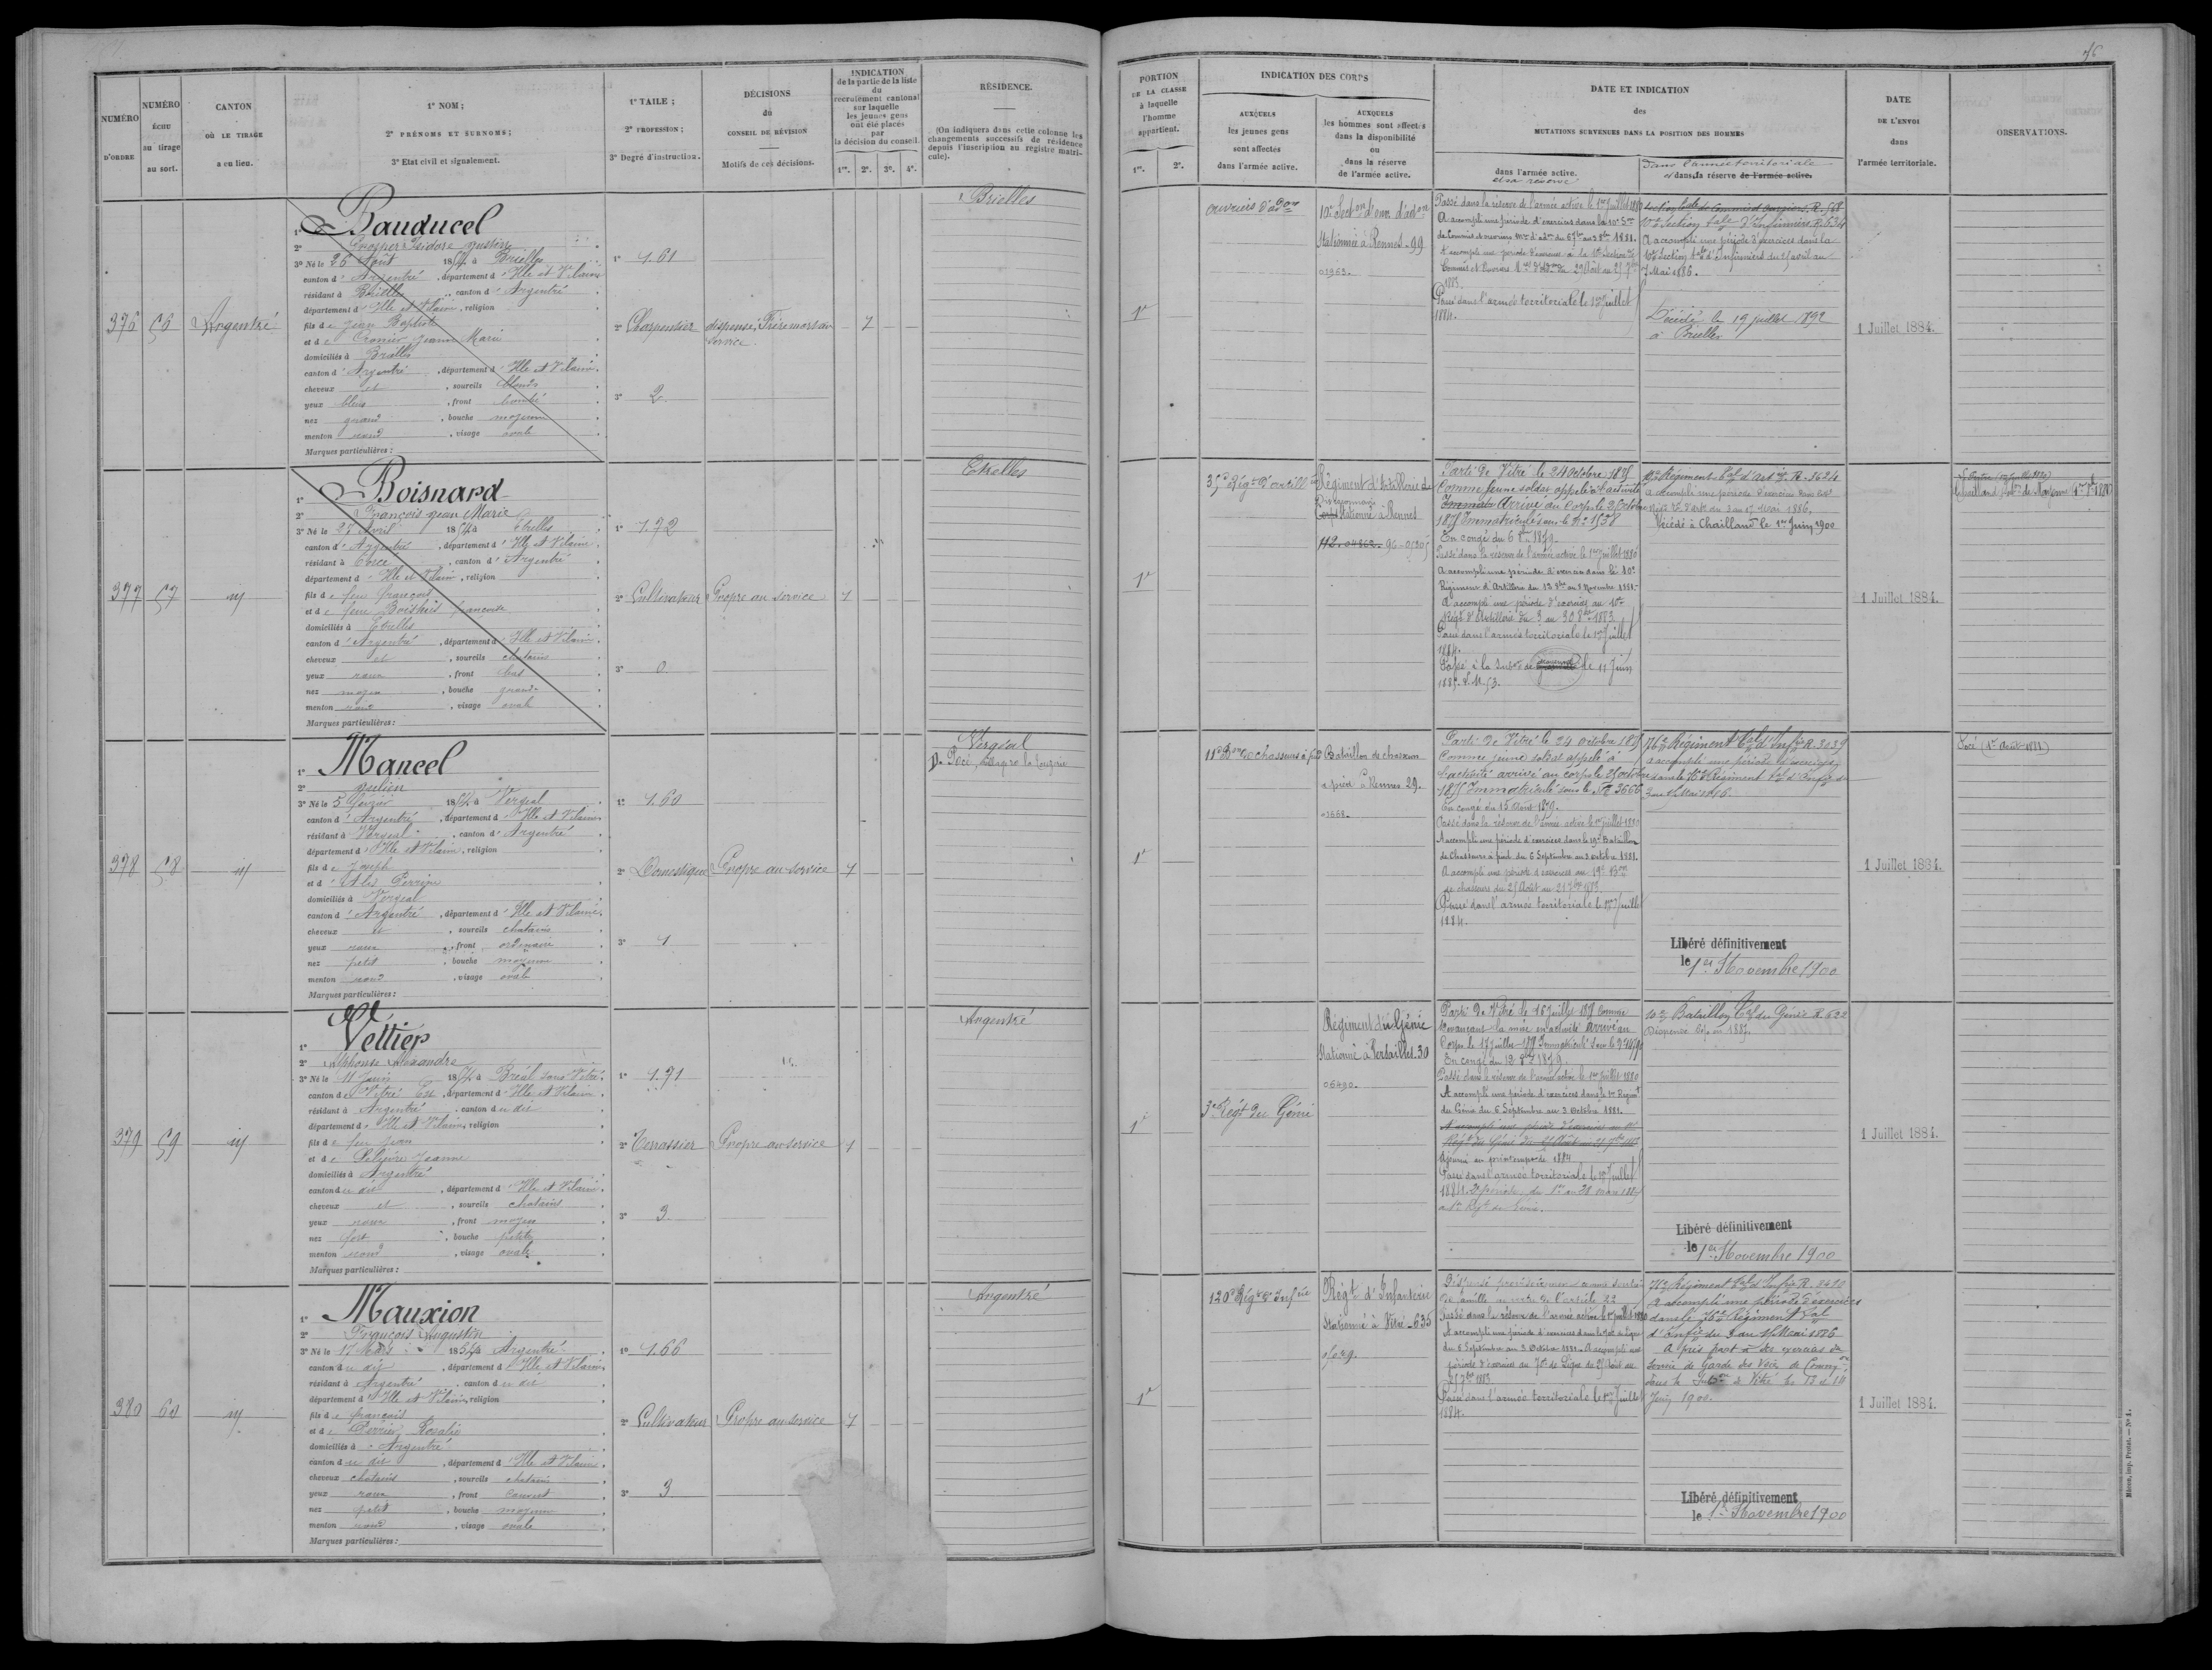 76
NUMÉRO D'ORDRE
NUMÉRO ÉCHU au tirage au sort.
CANTON OÙ LE TIRAGE a eu lieu.
1° NOM ;
2° PRÉNOMS ET SURNOMS ;
3° Etat civil et signalement.
1° TAILE ;
2° PROFESSION ;
3° Degré d'instruction.
DÉCISIONS du CONSEIL DE RÉVISION
Motifs de ces décisions.
INDICATION
de la partie de la liste
du
recrutement cantonal
sur laquelle
les jeunes gens
ont été placés
par
la décision du conseil.
1re. 2e. 3e. 4e.
RÉSIDENCE.
(On indiquera dans cette colonne les
changements successifs de résidence
depuis l'inscription au registre matri-
cule).
PORTION
DE LA CLASSE
à laquelle
l'homme
appartient.
1re. 2e.
INDICATION DES CORPS
AUXQUELS
les jeunes gens
sont affectés
dans l'armée active.
AUXQUELS
les hommes sont affectés
dans la disponibilité
ou
dans la réserve
de l'armée active.
DATE ET INDICATION
des
MUTATIONS SURVENUES DANS LA POSITION DES HOMMES
dans l'armée active.
et sa réserve
Dans l'armée territoriale
et dans sa réserve de l'armée active.
DATE
DE L'ENVOI
dans
l'armée territoriale.
OBSERVATIONS.
376
56
Argentré
1° Bauducel
2° Prosper Isidore
3° Né le 26 Août 1854 à Brielles
canton d'Argentré, département d'Ille et Vilaine
résidant à Brielles, canton d'Argentré
département d'Ille et Vilaine, religion
fils de Jean Baptiste
et de Jeanne Marie
domiciliés à Brielles
canton d'Argentré, département d'Ille et Vilaine.
cheveux et, sourcils blonds
yeux bleus, front bombé
nez grand, bouche moyenne
menton rond, visage ovale
Marques particulières :
1° 1.61
2° Charpentier
3° 2
dispensé, Frère mort au
service.
Brielles
1re
ouvriers d'adon
10e Secton d'ouv. d'adon
Stationnée à Rennes - 99
01963.
Passé dans la réserve de l'armée active le 1er Juillet 1880
A accompli une période d'exercices dans la 10e Son
de Commis et ouvriers
1883.
Passé dans l'armée territoriale le 1er Juillet
1884.
10e Section tale d'Infirmiers R. 634
A accompli une période d'exercices dans la
10e Section tale d'Infirmiers du 25 avril au
7 Mai 1886.
Décédé le 19 juillet 1892
à Brielles
1 Juillet 1884.
377
57
id
1° Boisnard
2° François Jean Marie
3° Né le 27 Avril 1854 à Etrelles
canton d'Argentré, département d'Ille et Vilaine.
résidant à, canton d'Argentré
département d'Ille et Vilaine, religion
fils de feu françois
et de feue françoise
domiciliés à Etrelles
canton d'Argentré, département d'Ille et Vilaine.
cheveux et, sourcils chatains
yeux roux, front bas
nez moyen, bouche grande
menton rond, visage ovale
Marques particulières :
1° 1.72
2° Cultivateur
3° 0
Propre au service
1
Etrelles
1re
35e Régt d'artillie
Régiment d'Artillerie de
Stationné à Rennes
Parti de Vitré le 24 octobre 1875
Comme jeune soldat appelé à l'activité
Arrivé au Corps le 25 octobre
1875 Immatriculé sous le No 1538
En congé du 6 8bre 1879.
Passé dans la réserve de l'armée active le 1er Juillet 1880
A accompli une période d'exercices dans le 10e
Régiment d'Artillerie du 12 8bre au 8 Novembre 1881.
A accompli une période d'exercices au 10e
Régt d'Artillerie du 3 au 30 8bre 1883.
Passé dans l'armée territoriale le 1er Juillet
1884.
Passé à la Subon de le 11 Juin
1885.
10e Régiment tal d'Artie R. 3624
a accompli une période d'exercices dans ce
Mai 1886.
Décédé à Chailland le 1er Juin 1900
1 Juillet 1884.
378
58
id
1° Mancel
2° Julien
3° Né le 5 février 1854 à Vergéal
canton d'Argentré, département d'Ille et Vilaine.
résidant à Vergeal, canton d'Argentré
département d'Ille et Vilaine, religion
fils de Joseph
et d'Alis Perrine
domiciliés à Vergeal
canton d'Argentré, département d'Ille et Vilaine.
cheveux et, sourcils chatains
yeux roux, front ordinaire
nez petit, bouche moyenne
menton rond, visage ovale
Marques particulières :
1° 1.60
2° Domestique
3° 1
Propre au service
1
Vergéal
D. Pocé
1re
11e Bon de chasseurs à pied
Bataillon de chasseurs
à pied à Rennes 29.
01668.
Parti de Vitré le 24 octobre 1875
Comme jeune soldat appelé à
l'activité arrivé au corps le 25 octobre
1875 Immatriculé sous le No 3666
En congé du 15 Août 1879.
Passé dans la réserve de l'armée active le 1er Juillet 1880
A accompli une période d'exercices dans le 19e Bataillon
de Chasseurs à pied du 6 Septembre au 3 octobre 1881.
A accompli une période d'exercices au 19e Bon
de chasseurs du 25 Août au 21 7bre 1883.
Passé dans l'armée territoriale le 1er Juillet
1884.
76e Régiment tal d'Infie R. 3039
a accompli une période d'exercices
dans le 76e Régiment tal d'Infie du
3 au 15 Mai 1886.
Libéré définitivement
le 1er Novembre 1900
1 Juillet 1884.
Pocé (1er Août 1881)
379
59
id
1° Vettier
2° Alphonse Alexandre
3° Né le 11 Juin 1854 à Bréal sous Vitré.
canton de Vitré Est, département d'Ille et Vilaine.
résidant à Argentré, canton du dit
département d'Ille et Vilaine, religion
fils de feu Jean
et de Lelièvre Jeanne
domiciliés à Argentré
canton du dit, département d'Ille et Vilaine.
cheveux et, sourcils chatains
yeux roux, front moyen
nez fort, bouche petite
menton rond, visage ovale
Marques particulières :
1° 1.71
2° Terrassier
3° 3
Propre au service
1
Argentré
1re
3e Régt du Génie
Régiment du Génie
Stationné à Versailles. 30
06490.
Parti de Vitré le 16 Juillet 1875 Comme
devançant la mise en activité arrivé au
Corps le 17 Juillet 1875 Immatriculé sous le
En congé du 12 8bre 1879.
Passé dans la réserve de l'armée active le 1er Juillet 1880
A accompli une période d'exercices dans le 1er Regimt
du Génie du 6 Septembre au 3 octobre 1881.
Ajourné au printemps de 1884
Passé dans l'armée territoriale le 1er Juillet
1884. 2e période du 1er au 28 mars 1885
au 1er Régt de Génie.
10e Bataillon tal du Génie R. 622
Dispensé en 1887.
Libéré définitivement
le 1er Novembre 1900
1 Juillet 1884.
380
60
id
1° Mauxion
2° François Augustin
3° Né le 17 Mars 1854 à Argentré
canton du dit, département d'Ille et Vilaine.
résidant à Argentré, canton du dit
département d'Ille et Vilaine, religion
fils de françois
et de Perrier Rosalie
domiciliés à Argentré
canton du dit, département d'Ille et Vilaine.
cheveux chatains, sourcils chatains
yeux roux, front couvert
nez petit, bouche moyenne
menton rond, visage ovale
Marques particulières :
1° 1.66
2° Cultivateur
3° 3
Propre au service
1
Argentré
1re
120e Régt d'Infie
Régt d'Infanterie
Stationné à Vitré - 635
Dispensé provisoirement comme soutien
de famille en vertu de l'article 22
Passé dans la réserve de l'armée active le 1er Juillet 1880
A accompli une période d'exercices dans le 70e de Ligne
du 6 Septembre au 3 Octobre 1881. A accompli une
période d'exercices au 70e de Ligne du 25 Août au
21 7bre 1883
Passé dans l'armée territoriale le 1er Juillet
1884.
76e Régiment tal d'Infie R. 3490
A accompli une période d'exercices
dans le 76e Régiment tal
d'Infie du 3 au 15 Mai 1886
A pris part à des exercices du
Service de Garde des Voies de Common
dans la Subon de Vitré
Juin 1900.
Libéré définitivement
le 1er Novembre 1900
1 Juillet 1884.